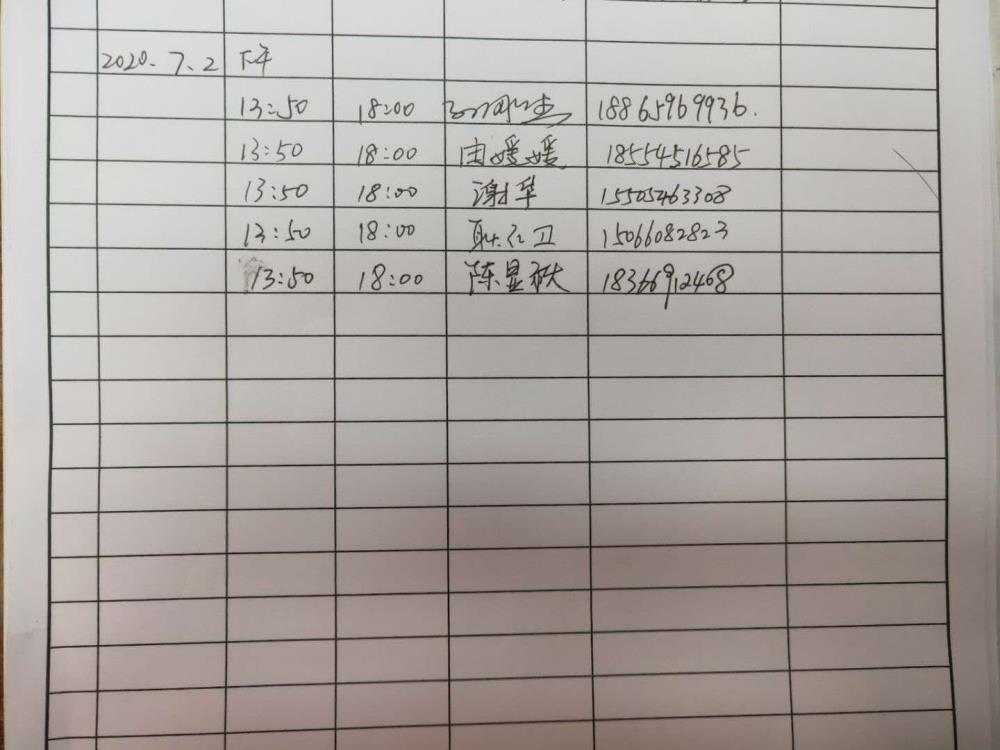 2020.7.2 下午
13:50 18:00 18865969936.
13:50 18:00 由媛媛 18554516585
13:50 18:00 谢华 15505463308
13:50 18:00 耿红卫 15066082823
13:50 18:00 陈显秋 18366912468